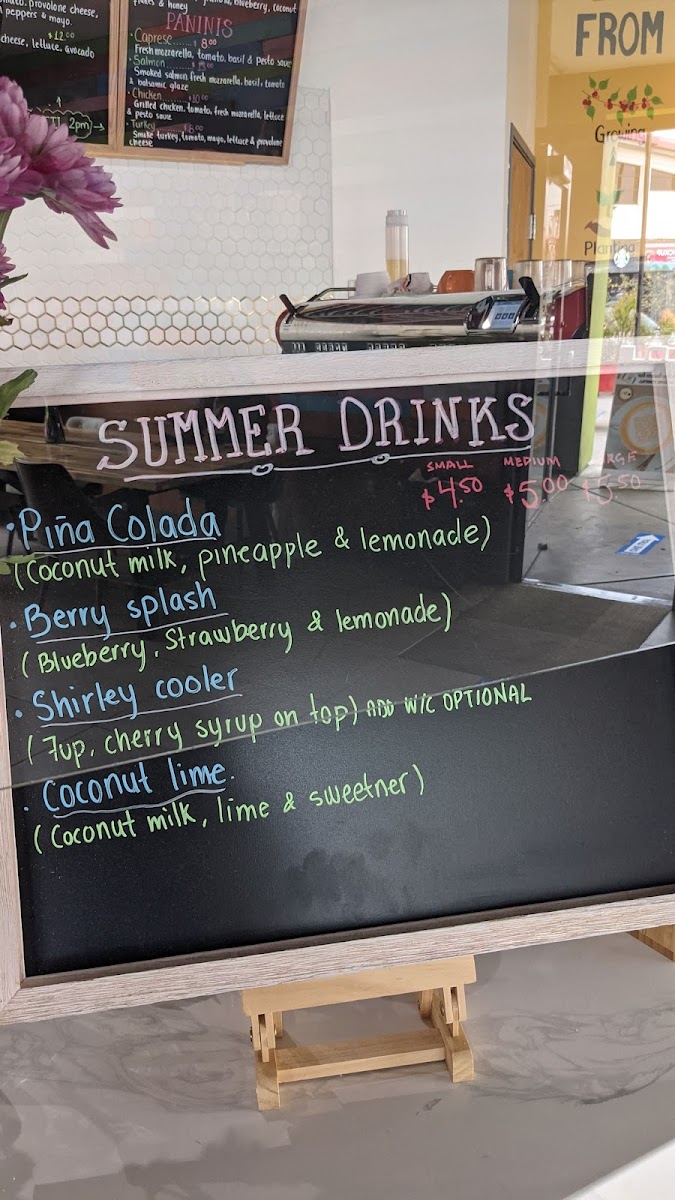 provolone cheese,
peppers & mayo.
$12.00
cheese, lettuce, avocado
2pm
blueberry, coconut
flakes & honey
PANINIS
• Caprese ...... $ 8.00
Fresh mozzarella, tomato, basil & pesto sauce
• Salmon
Smoked salmon, fresh mozzarella, basil, tomato
& balsamic glaze
• Chicken
Grilled chicken, tomato, fresh mozzarella, lettuce
& pesto sauce
• Turkey
Smoke turkey, tomato, mayo, lettuce & provolone
cheese
FROM
Growing
Planting
SUMMER DRINKS
SMALL MEDIUM
$4.50 $5.00 $5.50
• Piña Colada
(Coconut milk, pineapple & lemonade)
• Berry splash
(Blueberry, Strawberry & lemonade)
• Shirley cooler
(7up, cherry syrup on top) ADD W/C OPTIONAL
• Coconut lime.
(Coconut milk, lime & sweetner)